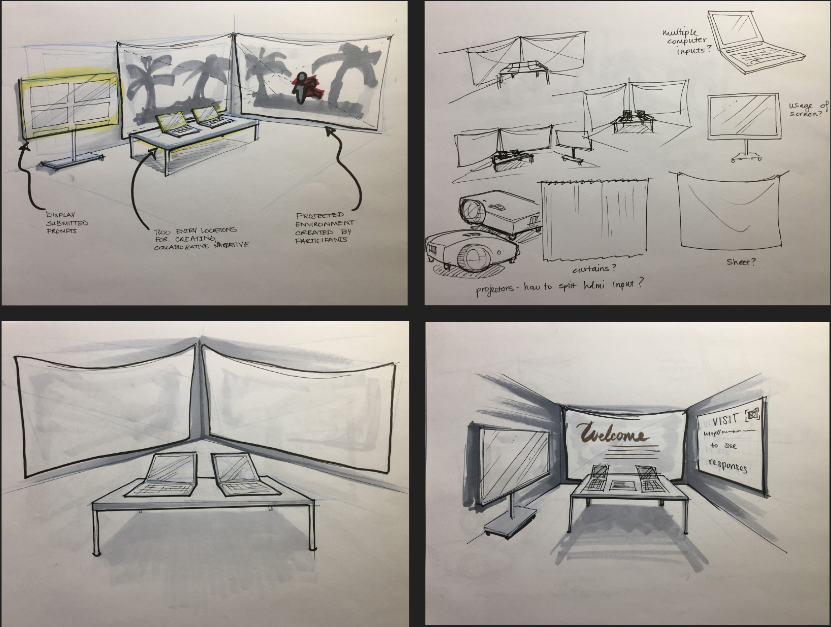 DISPLAY
SUBMITTED
PROMPTS
TWO ENTRY LOCATIONS
FOR CREATING
COLLABORATIVE NARRATIVE
PROJECTED
ENVIRONMENT
CREATED BY
PARTICIPANTS
multiple
computer
inputs?
usage of
screen?
curtains?
Sheet?
projectors - how to split hdmi input?
Welcome
VISIT
to see
responses